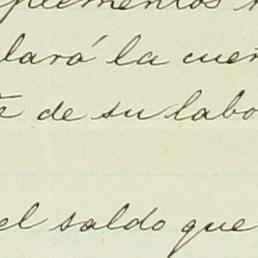 plementos
lará la cuen
te de su labo
el saldo que